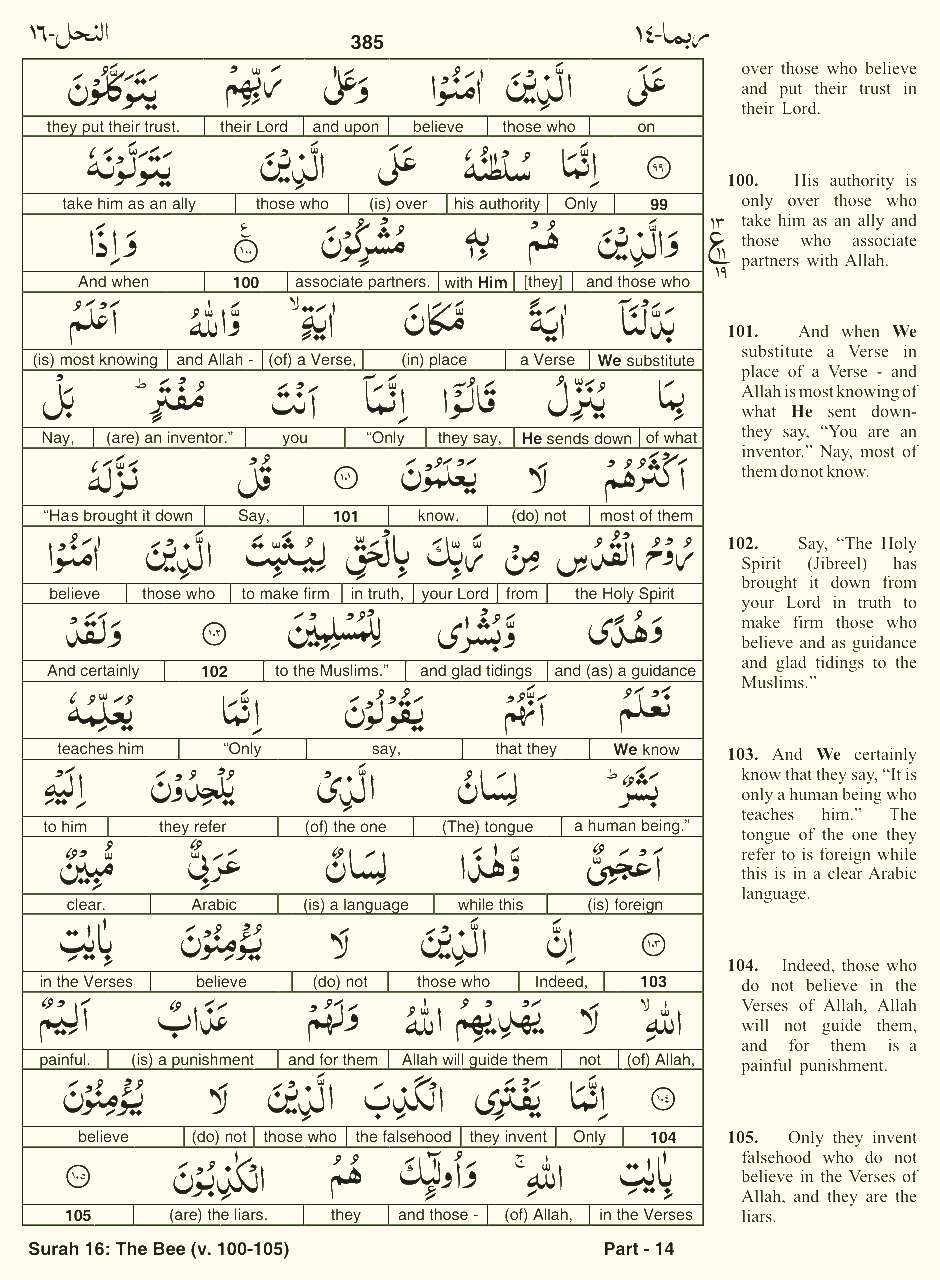 النحل-١٦ 385 ربما-١٤
عَلَى الَّذِيْنَ اٰمَنُوْا وَعَلٰى رَبِّهِمْ يَتَوَكَّلُوْنَ
on those who believe and upon their Lord they put their trust.
٩٩ اِنَّمَا سُلْطٰنُهٗ عَلَى الَّذِيْنَ يَتَوَلَّوْنَهٗ
99 Only his authority (is) over those who take him as an ally
وَالَّذِيْنَ هُمْ بِهٖ مُشْرِكُوْنَ ع ١٠٠ وَاِذَا
and those who [they] with Him associate partners. 100 And when
١٣ ع ١١ ١٩
بَدَّلْنَاۤ اٰيَةً مَّكَانَ اٰيَةٍ ۙ وَّاللّٰهُ اَعْلَمُ
We substitute a Verse (in) place (of) a Verse, and Allah - (is) most knowing
بِمَا يُنَزِّلُ قَالُوْۤا اِنَّمَاۤ اَنْتَ مُفْتَرٍ ؕ بَلْ
of what He sends down they say, “Only you (are) an inventor.” Nay,
اَكْثَرُهُمْ لَا يَعْلَمُوْنَ ١٠١ قُلْ نَزَّلَهٗ
most of them (do) not know. 101 Say, “Has brought it down
رُوْحُ الْقُدُسِ مِنْ رَّبِّكَ بِالْحَقِّ لِيُثَبِّتَ الَّذِيْنَ اٰمَنُوْا
the Holy Spirit from your Lord in truth, to make firm those who believe
وَهُدًى وَّبُشْرٰى لِلْمُسْلِمِيْنَ ١٠٢ وَلَقَدْ
and (as) a guidance and glad tidings to the Muslims.” 102 And certainly
نَعْلَمُ اَنَّهُمْ يَقُوْلُوْنَ اِنَّمَا يُعَلِّمُهٗ
We know that they say, “Only teaches him
بَشَرٌ ؕ لِسَانُ الَّذِيْ يُلْحِدُوْنَ اِلَيْهِ
a human being.” (The) tongue (of) the one they refer to him
اَعْجَمِيٌّ وَّهٰذَا لِسَانٌ عَرَبِيٌّ مُّبِيْنٌ
(is) foreign while this (is) a language Arabic clear.
١٠٣ اِنَّ الَّذِيْنَ لَا يُؤْمِنُوْنَ بِاٰيٰتِ
103 Indeed, those who (do) not believe in the Verses
اللّٰهِ ۙ لَا يَهْدِيْهِمُ اللّٰهُ وَلَهُمْ عَذَابٌ اَلِيْمٌ
(of) Allah, not Allah will guide them and for them (is) a punishment painful.
١٠٤ اِنَّمَا يَفْتَرِى الْكَذِبَ الَّذِيْنَ لَا يُؤْمِنُوْنَ
104 Only they invent the falsehood those who (do) not believe
بِاٰيٰتِ اللّٰهِ ۚ وَاُولٰٓئِكَ هُمُ الْكٰذِبُوْنَ ١٠٥
in the Verses (of) Allah, and those - they (are) the liars. 105
over those who believe
and put their trust in
their Lord.
100. His authority is
only over those who
take him as an ally and
those who associate
partners with Allah.
101. And when We
substitute a Verse in
place of a Verse - and
Allah is most knowing of
what He sent down-
they say, “You are an
inventor.” Nay, most of
them do not know.
102. Say, “The Holy
Spirit (Jibreel) has
brought it down from
your Lord in truth to
make firm those who
believe and as guidance
and glad tidings to the
Muslims.”
103. And We certainly
know that they say, “It is
only a human being who
teaches him.” The
tongue of the one they
refer to is foreign while
this is in a clear Arabic
language.
104. Indeed, those who
do not believe in the
Verses of Allah, Allah
will not guide them,
and for them is a
painful punishment.
105. Only they invent
falsehood who do not
believe in the Verses of
Allah, and they are the
liars.
Surah 16: The Bee (v. 100-105) Part - 14